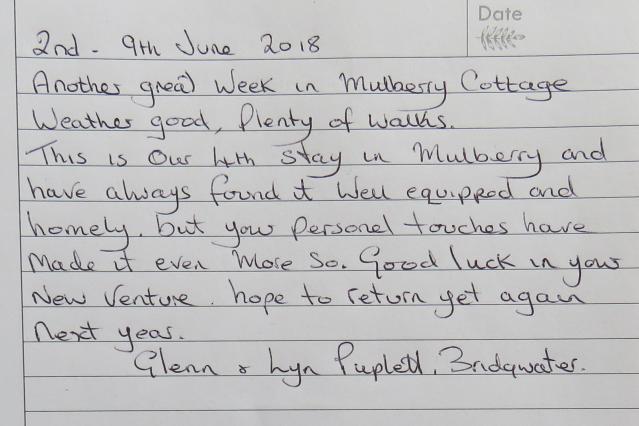 Date
2nd - 9th June 2018
Another great Week in Mulberry Cottage
Weather good, Plenty of walks.
This is Our 4th stay in Mulberry and
have always found it Well equipped and
homely. but your Personal touches have
Made it even More So. Good luck in your
New Venture. hope to return yet again
Next year.
Glenn & Lyn Puplett, Bridgwater.